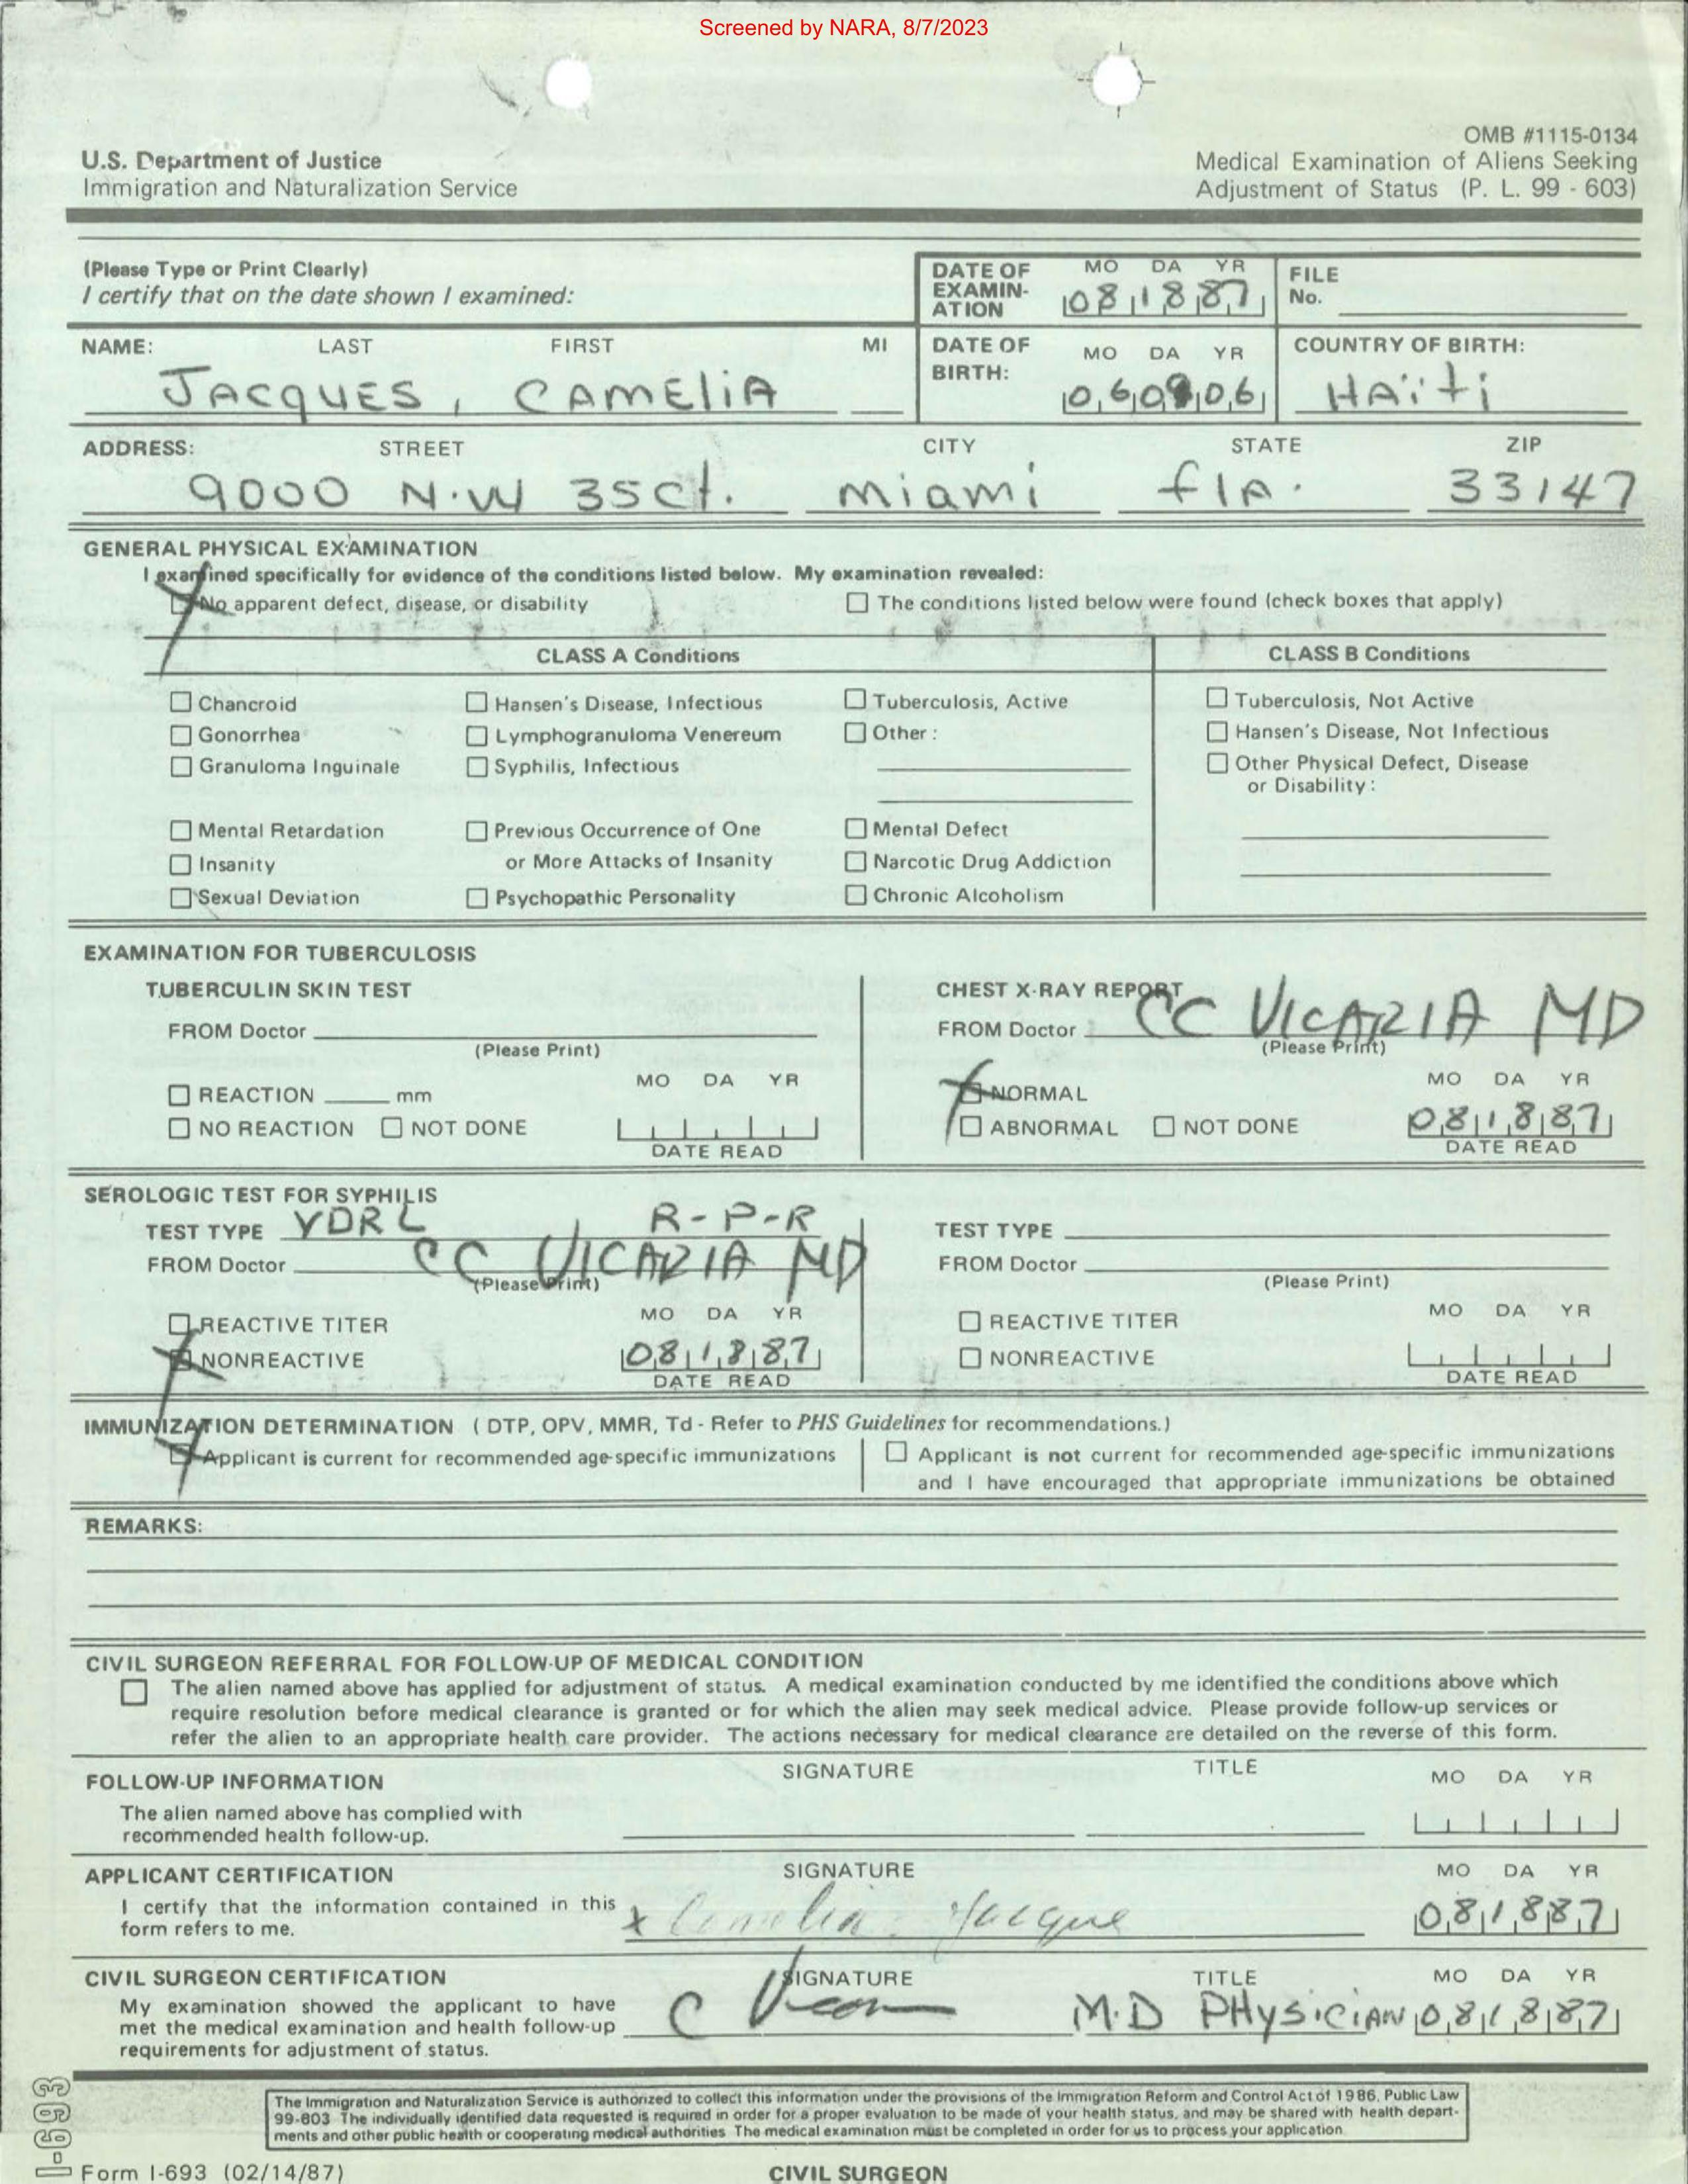 Screened by NARA, 8/7/2023
OMB #1115-0134
U.S. Department of Justice
Medical Examination of Aliens Seeking
Immigration and Naturalization Service
Adjustment of Status (P. L. 99 - 603)
(Please Type or Print Clearly)
I certify that on the date shown I examined:
DATE OF EXAMIN-ATION
MO DA YR
081887
FILE No.
NAME: LAST FIRST MI
JACQUES, CAMELIA
DATE OF BIRTH:
MO DA YR
060906
COUNTRY OF BIRTH:
HAïti
ADDRESS: STREET CITY STATE ZIP
9000 N.W 35ct. miami flA. 33147
GENERAL PHYSICAL EXAMINATION
I examined specifically for evidence of the conditions listed below. My examination revealed:
No apparent defect, disease, or disability
The conditions listed below were found (check boxes that apply)
CLASS A Conditions
CLASS B Conditions
Chancroid Hansen's Disease, Infectious Tuberculosis, Active Tuberculosis, Not Active
Gonorrhea Lymphogranuloma Venereum Other: Hansen's Disease, Not Infectious
Granuloma Inguinale Syphilis, Infectious Other Physical Defect, Disease
or Disability:
Mental Retardation Previous Occurrence of One Mental Defect
Insanity or More Attacks of Insanity Narcotic Drug Addiction
Sexual Deviation Psychopathic Personality Chronic Alcoholism
EXAMINATION FOR TUBERCULOSIS
TUBERCULIN SKIN TEST
FROM Doctor
(Please Print)
MO DA YR
REACTION mm
NO REACTION NOT DONE
DATE READ
CHEST X-RAY REPORT
FROM Doctor CC VICARIA MD
(Please Print)
MO DA YR
NORMAL
ABNORMAL NOT DONE 081887
DATE READ
SEROLOGIC TEST FOR SYPHILIS
TEST TYPE VDRL R-P-R
FROM Doctor CC VICARIA MD
(Please Print)
MO DA YR
REACTIVE TITER
NONREACTIVE 081887
DATE READ
TEST TYPE
FROM Doctor
(Please Print)
MO DA YR
REACTIVE TITER
NONREACTIVE
DATE READ
IMMUNIZATION DETERMINATION ( DTP, OPV, MMR, Td - Refer to PHS Guidelines for recommendations.)
Applicant is current for recommended age-specific immunizations
Applicant is not current for recommended age-specific immunizations
and I have encouraged that appropriate immunizations be obtained
REMARKS:
CIVIL SURGEON REFERRAL FOR FOLLOW-UP OF MEDICAL CONDITION
The alien named above has applied for adjustment of status. A medical examination conducted by me identified the conditions above which
require resolution before medical clearance is granted or for which the alien may seek medical advice. Please provide follow-up services or
refer the alien to an appropriate health care provider. The actions necessary for medical clearance are detailed on the reverse of this form.
FOLLOW-UP INFORMATION SIGNATURE TITLE MO DA YR
The alien named above has complied with
recommended health follow-up.
APPLICANT CERTIFICATION SIGNATURE MO DA YR
I certify that the information contained in this
form refers to me.
x Camelia Jacque 081887
CIVIL SURGEON CERTIFICATION SIGNATURE TITLE MO DA YR
My examination showed the applicant to have
met the medical examination and health follow-up
requirements for adjustment of status.
M.D PHYSICIAN 081887
The Immigration and Naturalization Service is authorized to collect this information under the provisions of the Immigration Reform and Control Act of 1986, Public Law
99-603 The individually identified data requested is required in order for a proper evaluation to be made of your health status, and may be shared with health depart-
ments and other public health or cooperating medical authorities The medical examination must be completed in order for us to process your application
I-693
Form I-693 (02/14/87)
CIVIL SURGEON